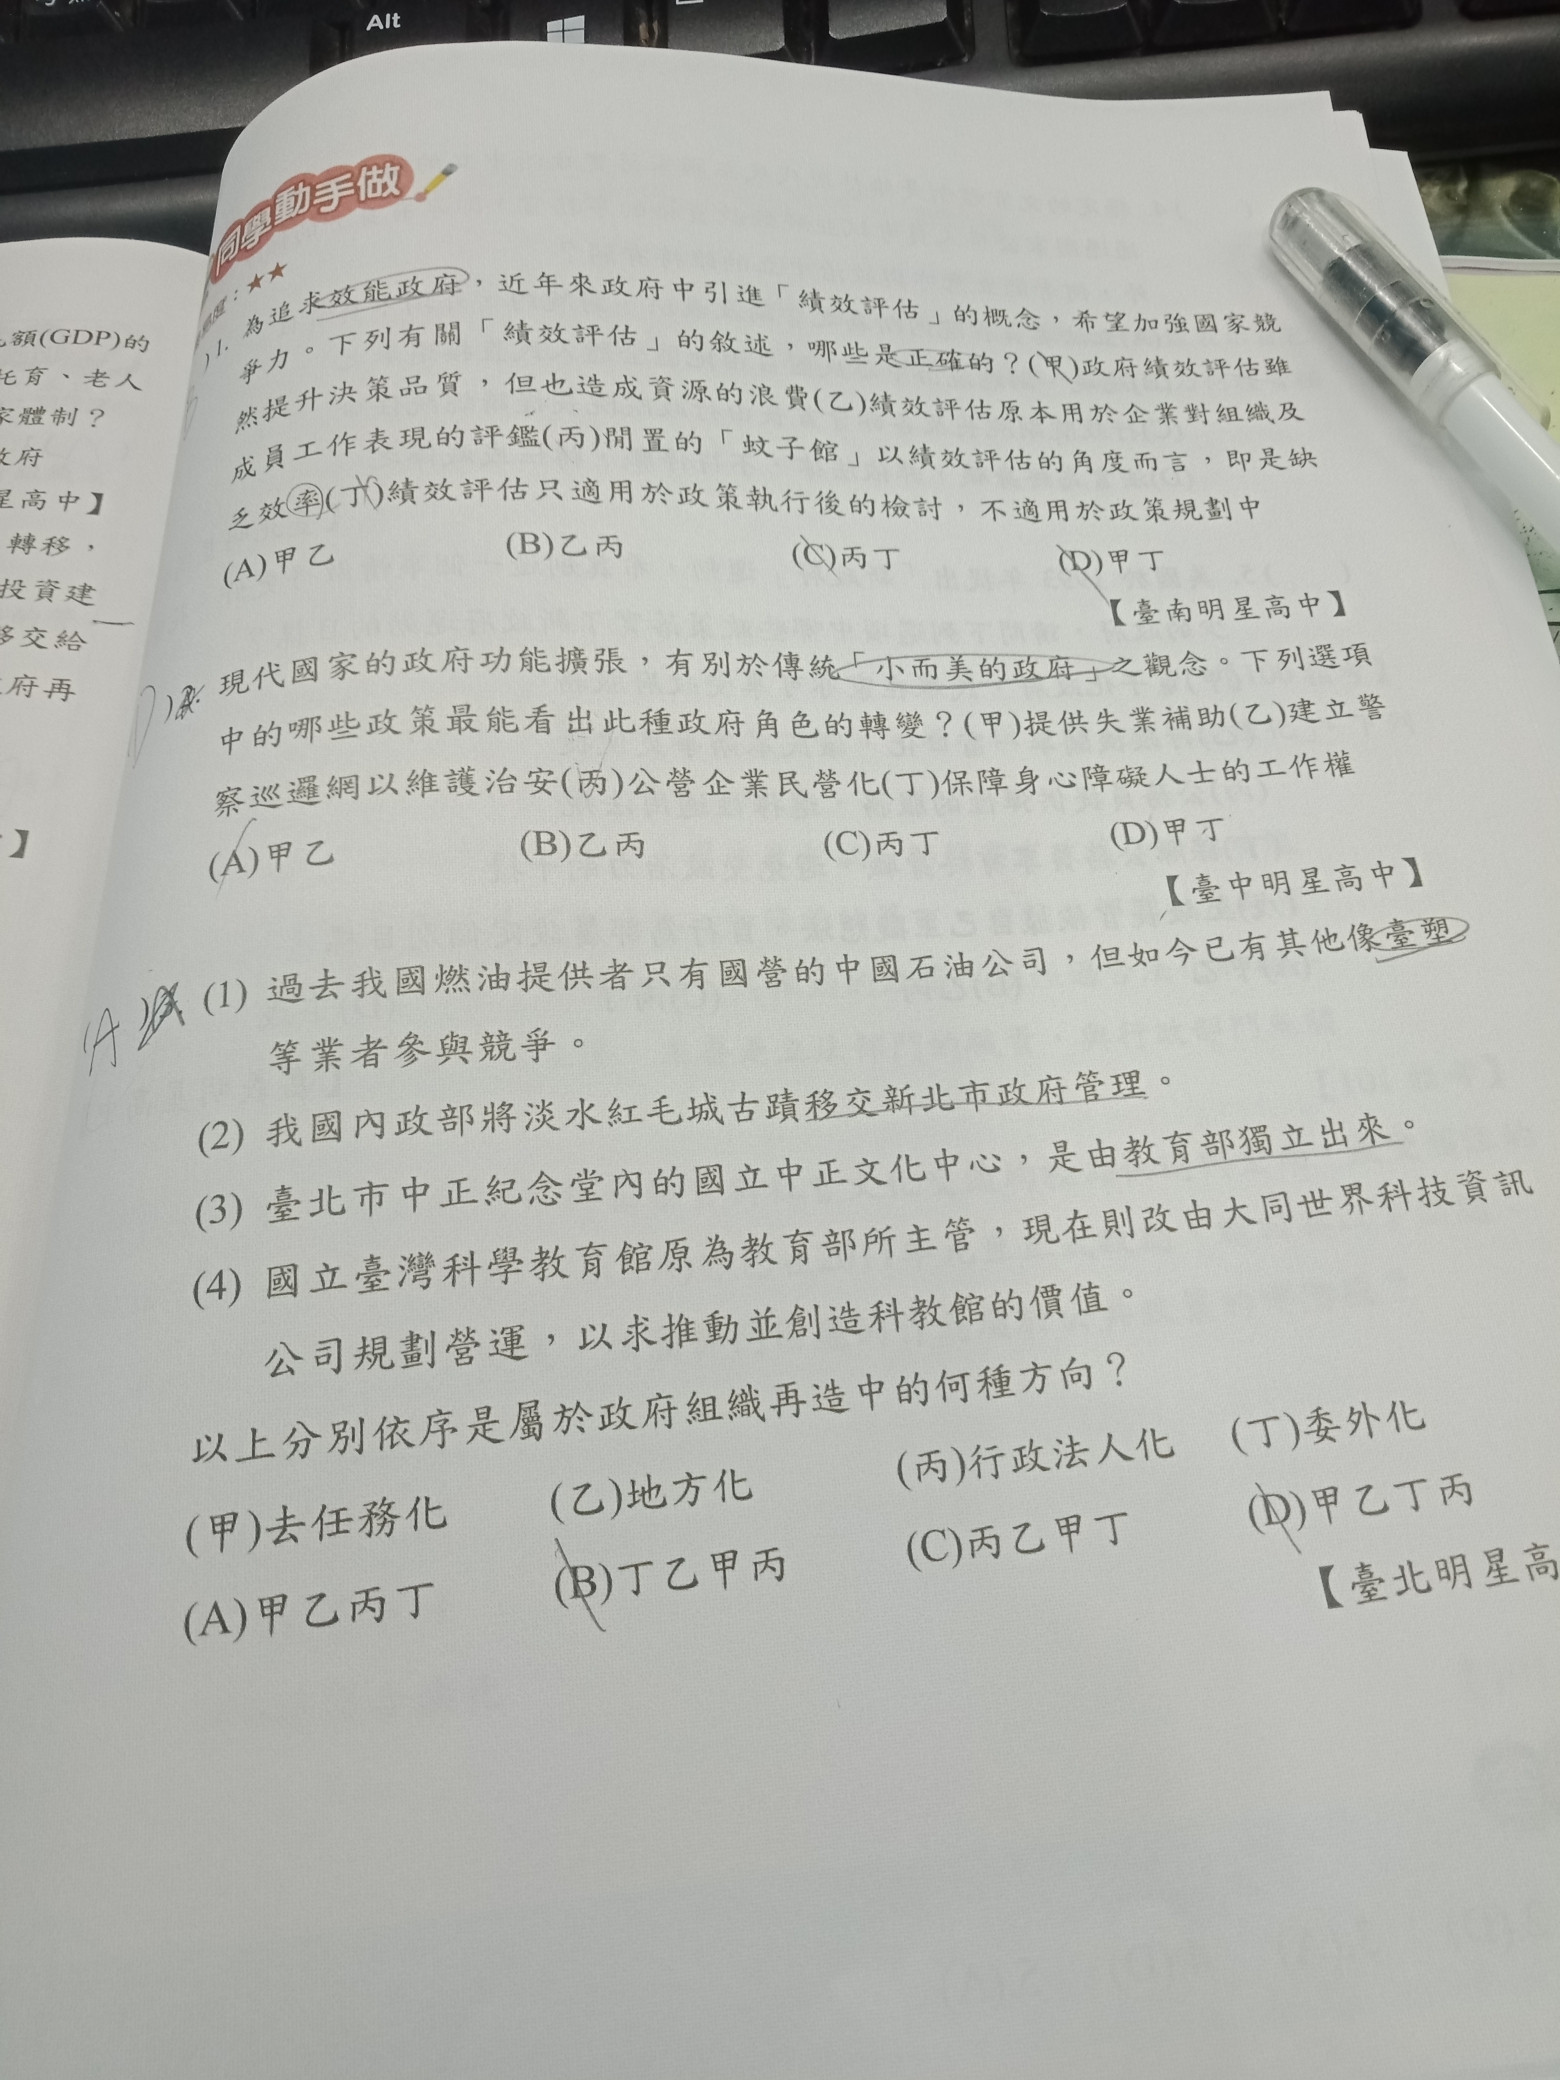 Alt
同學動手做
：★★
1. 為追求效能政府，近年來政府中引進「績效評估」的概念，希望加強國家競
爭力。下列有關「績效評估」的敘述，哪些是正確的？(甲)政府績效評估雖
然提升決策品質，但也造成資源的浪費(乙)績效評估原本用於企業對組織及
成員工作表現的評鑑(丙)閒置的「蚊子館」以績效評估的角度而言，即是缺
乏效率(丁)績效評估只適用於政策執行後的檢討，不適用於政策規劃中
(A)甲乙 (B)乙丙 (C)丙丁 (D)甲丁
【臺南明星高中】
現代國家的政府功能擴張，有別於傳統「小而美的政府」之觀念。下列選項
中的哪些政策最能看出此種政府角色的轉變？(甲)提供失業補助(乙)建立警
察巡邏網以維護治安(丙)公營企業民營化(丁)保障身心障礙人士的工作權
(A)甲乙 (B)乙丙 (C)丙丁 (D)甲丁
【臺中明星高中】
A (1) 過去我國燃油提供者只有國營的中國石油公司，但如今已有其他像臺塑
等業者參與競爭。
(2) 我國內政部將淡水紅毛城古蹟移交新北市政府管理。
(3) 臺北市中正紀念堂內的國立中正文化中心，是由教育部獨立出來。
(4) 國立臺灣科學教育館原為教育部所主管，現在則改由大同世界科技資訊
公司規劃營運，以求推動並創造科教館的價值。
以上分別依序是屬於政府組織再造中的何種方向？
(甲)去任務化 (乙)地方化 (丙)行政法人化 (丁)委外化
(A)甲乙丙丁 (B)丁乙甲丙 (C)丙乙甲丁 (D)甲乙丁丙
【臺北明星高
額(GDP)的
托育、老人
家體制？
政府
星高中】
轉移，
投資建
移交給
府再
】